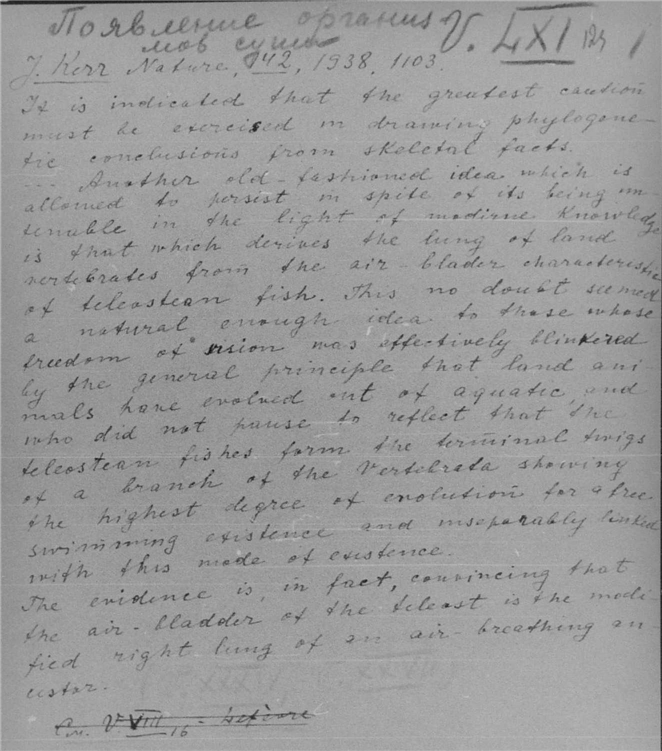 Появление организ
мов суши V. LXI
J. Kerr Nature, 142, 1938, 1103.
It is indicated that the greatest caution
must be exercised in drawing phylogene-
tic conclusions from skeletal facts.
--- Another old-fashioned idea which is
allowed to persist in spite of its being un-
tenable in the light of modirne knowledge
is that which derives the lung of land
vertebrates from the air-blader characteristic
of teleostean fish. This no doubt seemed
a natural enough idea to those whose
freedom of vision was effectively blinkered
by the general principle that land ani-
mals have evolved out of aquatic, and
who did not pause to reflect that the
teleostean fishes form the terminal twigs
of a branch of the Vertebrata showing
the highest degree of evolution for a free
swimming existence and inseparably linked
with this mode of existence.
The evidence is, in fact, convincing that
the air-bladder of the teleost is the modi-
fied right lung of an air-breathing an-
cestor.
См. V. VIII 16